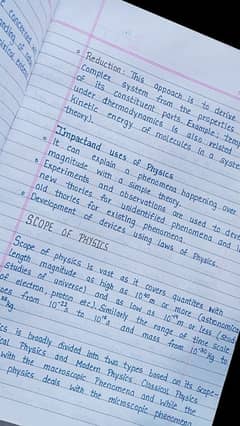 Reduction: This approach is to derive
complex system from the properties
of its constituent parts. Example; temp
under thermodynamics is also related
kinetic energy of molecules in a system
theory).
Impactand uses of Physics
It can explain a phenomena happening over
magnitude with a simple theory.
Experiments and observations are used to deve
new thories for unidentified phenomena and
old thories for existing phenomena.
Development of devices using laws of Physics.
SCOPE OF PHYSICS
Scope of physics is vast as it covers quantities with
length magnitude as high as 10⁴⁰m or more (astronomical
studies of universe) and as low as 10⁻¹⁴m or less (study
of electron, proton etc). Similarly the range of time scale
goes from 10⁻²²s to 10¹⁸s and mass from 10⁻³⁰kg to
⁵⁵kg.
ics is broadly divided into two types based on its scope-
ical Physics and Modern Physics. Classical Physics
with the macroscopic Phenomena and while the
physics deals with the microscopic phenomena